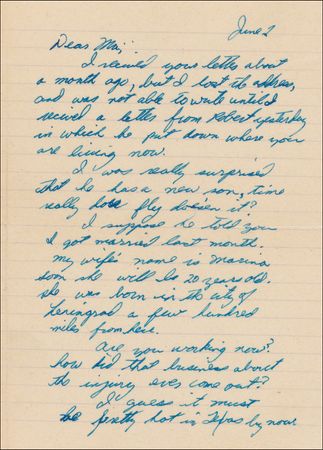 June 2
Dear Ma;
I recived your letter about
a month ago, but I lost the address,
and was not able to write until I
recived a letter from Robert yesterday
in which he put down where you
are living now.
I was really surprised
that he has a new son, time
really does fly doesen it?
I suppose he told you
I got married last month.
my wife's name is Marina
soon she will be 20 years old.
she was born in the city of
Leningrad a few hundred
miles from here.
Are you working now?
how did that business about
the injury ever come out?
I guess it must
be pretty hot in Texas by now